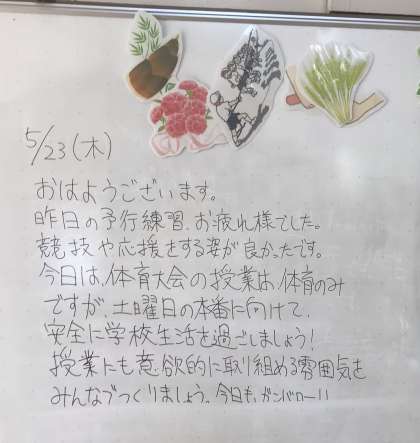 5/23(木)
おはようございます。
昨日の予行練習、お疲れ様でした。
競技や応援をする姿が良かったです。
今日は、体育大会の授業は、体育のみ
ですが、土曜日の本番に向けて、
安全に学校生活を過ごしましょう!
授業にも意欲的に取り組める雰囲気を
みんなでつくりましょう。今日も、ガンバロー!!